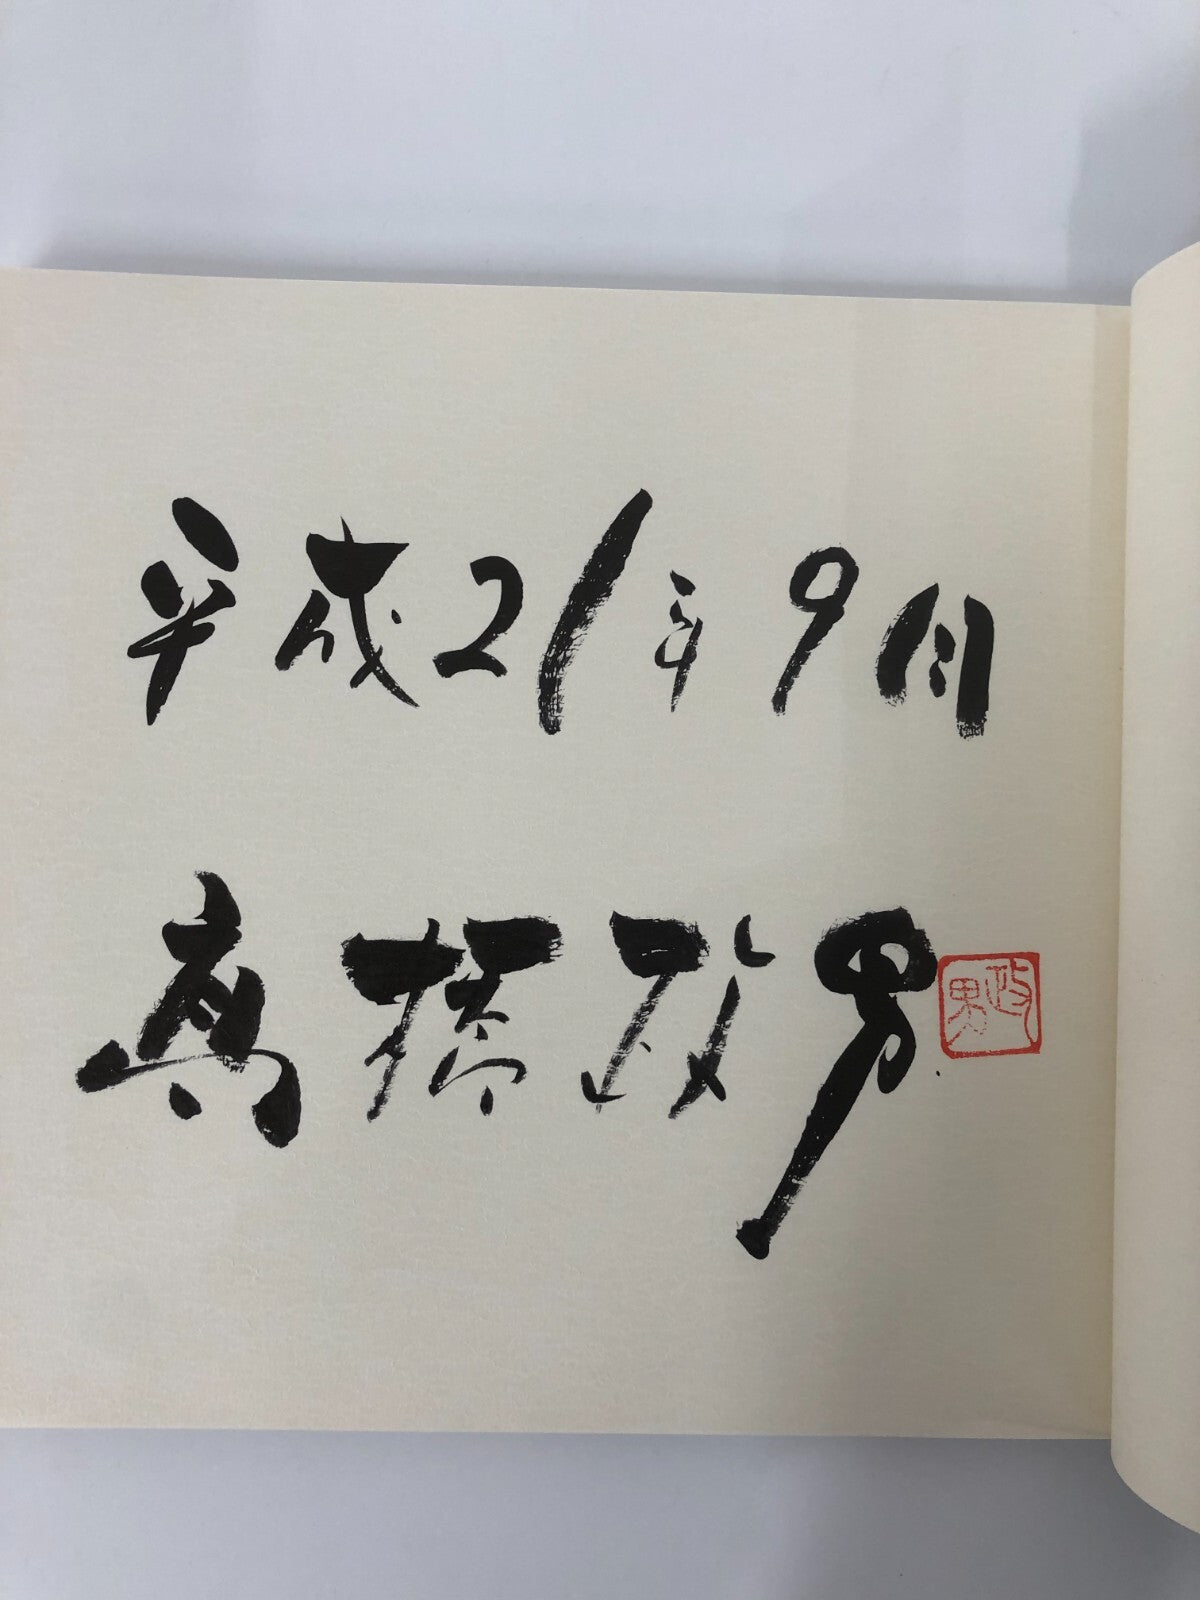 平成21年9月
高橋政男
政男